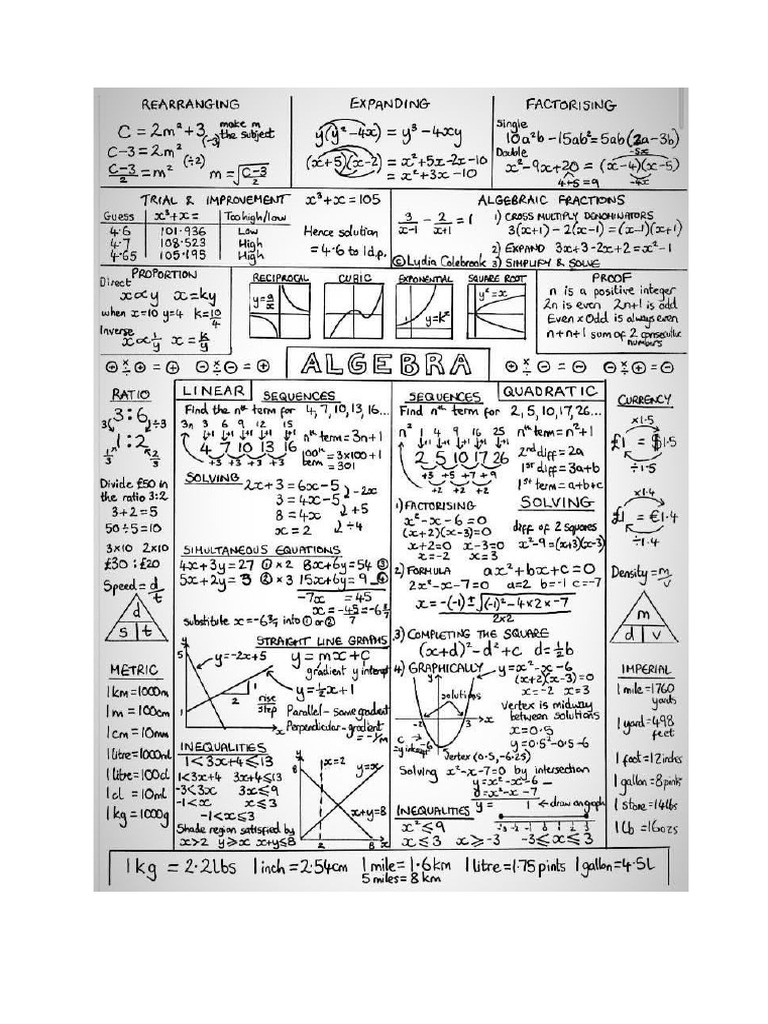 REARRANGING
C = 2m² + 3 make m the subject
(-3)
C-3 = 2m²
(÷2)
C-3/2 = m² m = √C-3/2
EXPANDING
y(y²-4x) = y³-4xy
(x+5)(x-2) = x²+5x-2x-10
= x²+3x-10
FACTORISING
Single
10a²b-15ab²=5ab(2a-3b)
Double -5x
x²-9x+20 = (x-4)(x-5)
4+5=9 -4x
TRIAL & IMPROVEMENT x³+x=105
Guess x³+x= Too high/low
4.6 101.936 Low
4.7 108.523 High
4.65 105.195 High
Hence solution
= 4.6 to 1d.p.
ALGEBRAIC FRACTIONS
3/x-1 - 2/x+1 = 1
1) CROSS MULTIPLY DENOMINATORS
3(x+1) - 2(x-1) = (x-1)(x+1)
2) EXPAND 3x+3-2x+2=x²-1
3) SIMPLIFY & SOLVE
© Lydia Colebrook
PROPORTION
Direct
x∝y x=ky
when x=10 y=4 k=10/4
Inverse
x∝1/y x=k/y
RECIPROCAL
y=a/x
CUBIC
EXPONENTIAL
1
y=kˣ
SQUARE ROOT
y²=x
PROOF
n is a positive integer
2n is even 2n+1 is odd
Even x Odd is always even
n+n+1 sum of 2 consecutive numbers
⊕×÷⊖=⊖ ⊖×÷⊖=⊕
ALGEBRA
⊕×÷⊖=⊖ ⊖×÷⊖=⊕
RATIO
3:6
3 ÷3
1:2
1/3 2/3
Divide £50 in
the ratio 3:2
3+2=5
50÷5=10
3x10 2x10
£30 : £20
Speed = d/t
d
s t
METRIC
1km=1000m
1m = 100cm
1cm = 10mm
1litre=1000ml
1litre=100cl
1cl = 10ml
1kg = 1000g
LINEAR SEQUENCES
Find the nth term for 4,7,10,13,16...
3n 3 6 9 12 15
+1 +1 +1 +1 +1
4 7 10 13 16
+3 +3 +3 +3
nth term = 3n+1
100th term = 3x100+1 = 301
SOLVING
2x+3 = 6x-5
-2x
3 = 4x-5
+5
8 = 4x
÷4
x = 2
SIMULTANEOUS EQUATIONS
4x+3y=27 ① x2 8x+6y=54 ③
5x+2y=3 ② x3 15x+6y=9 ④
-7x = 45
x = -45/7 = -6 3/7
substitute x=-6 3/7 into ① or ②
STRAIGHT LINE GRAPHS
y
5
y=-2x+5
1
2
1
x
y = mx+c
gradient y intercept
y=½x+1
rise/step
Parallel - same gradient
Perpendicular - gradient = -1/m
INEQUALITIES
1<3x+4≤13
1<3x+4 3x+4≤13
-3<3x 3x≤9
-1<x x≤3
-1<x≤3
Shade region satisfied by
x>2 y≥x x+y≤8
y
8
x=2
y=x
x+y=8
2
8
x
SEQUENCES QUADRATIC
Find nth term for 2,5,10,17,26...
n² 1 4 9 16 25
+1 +1 +1 +1 +1
2 5 10 17 26
+3 +5 +7 +9
+2 +2 +2
nth term = n²+1
2nd diff = 2a
1st diff = 3a+b
1st term = a+b+c
SOLVING
1) FACTORISING
x²-x-6=0
(x+2)(x-3)=0
x+2=0 x-3=0
x=-2 x=3
diff of 2 squares
x²-9=(x+3)(x-3)
2) FORMULA ax²+bx+c=0
2x²-x-7=0 a=2 b=-1 c=-7
x = -(-1) ± √(-1)²-4x2x-7
2x2
3) COMPLETING THE SQUARE
(x+d)²-d²+c d=½b
4) GRAPHICALLY
y
solutions
-2
3
x
c
y intercept
-6
Vertex (0.5, -6.25)
y=x²-x-6
(x+2)(x-3)=0
x=-2 x=3
Vertex is midway
between solutions
x=0.5
y=0.5²-0.5-6
Solving x²-x-7=0 by intersection
y=x²-x-6
y=x²-x-7
y= 1 ← draw on graph
INEQUALITIES
-3 -2 -1 0 1 2 3
x²≤9
x≤3 x≥-3 -3≤x≤3
CURRENCY
x1.5
£1 = $1.5
÷1.5
x1.4
£1 = €1.4
÷1.4
Density=m/v
m
d v
IMPERIAL
1 mile=1760 yards
1 yard=498 feet
1 foot=12inches
1 gallon=8pints
1 stone=14lbs
1 lb =16ozs
1kg = 2.2lbs 1inch=2.54cm 1mile=1.6km 1litre=1.75 pints 1gallon=4.5L
5 miles=8km